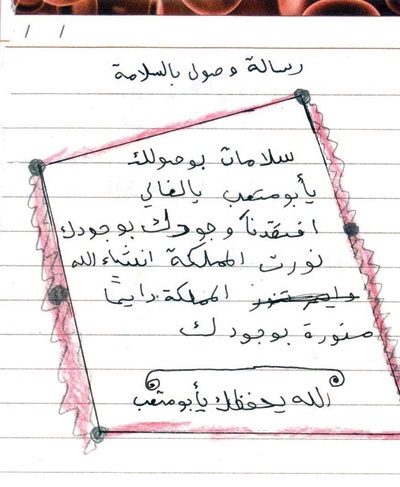 / /
رسالة وصول بالسلامة
سلامات بوصولك
يأبومتعب يالغالي
افتقدنا وجودك بوجودك
نورت المملكة انشاء الله
المملكة دايمًا
منورة بوجودك
الله يحفظك يأبومتعب